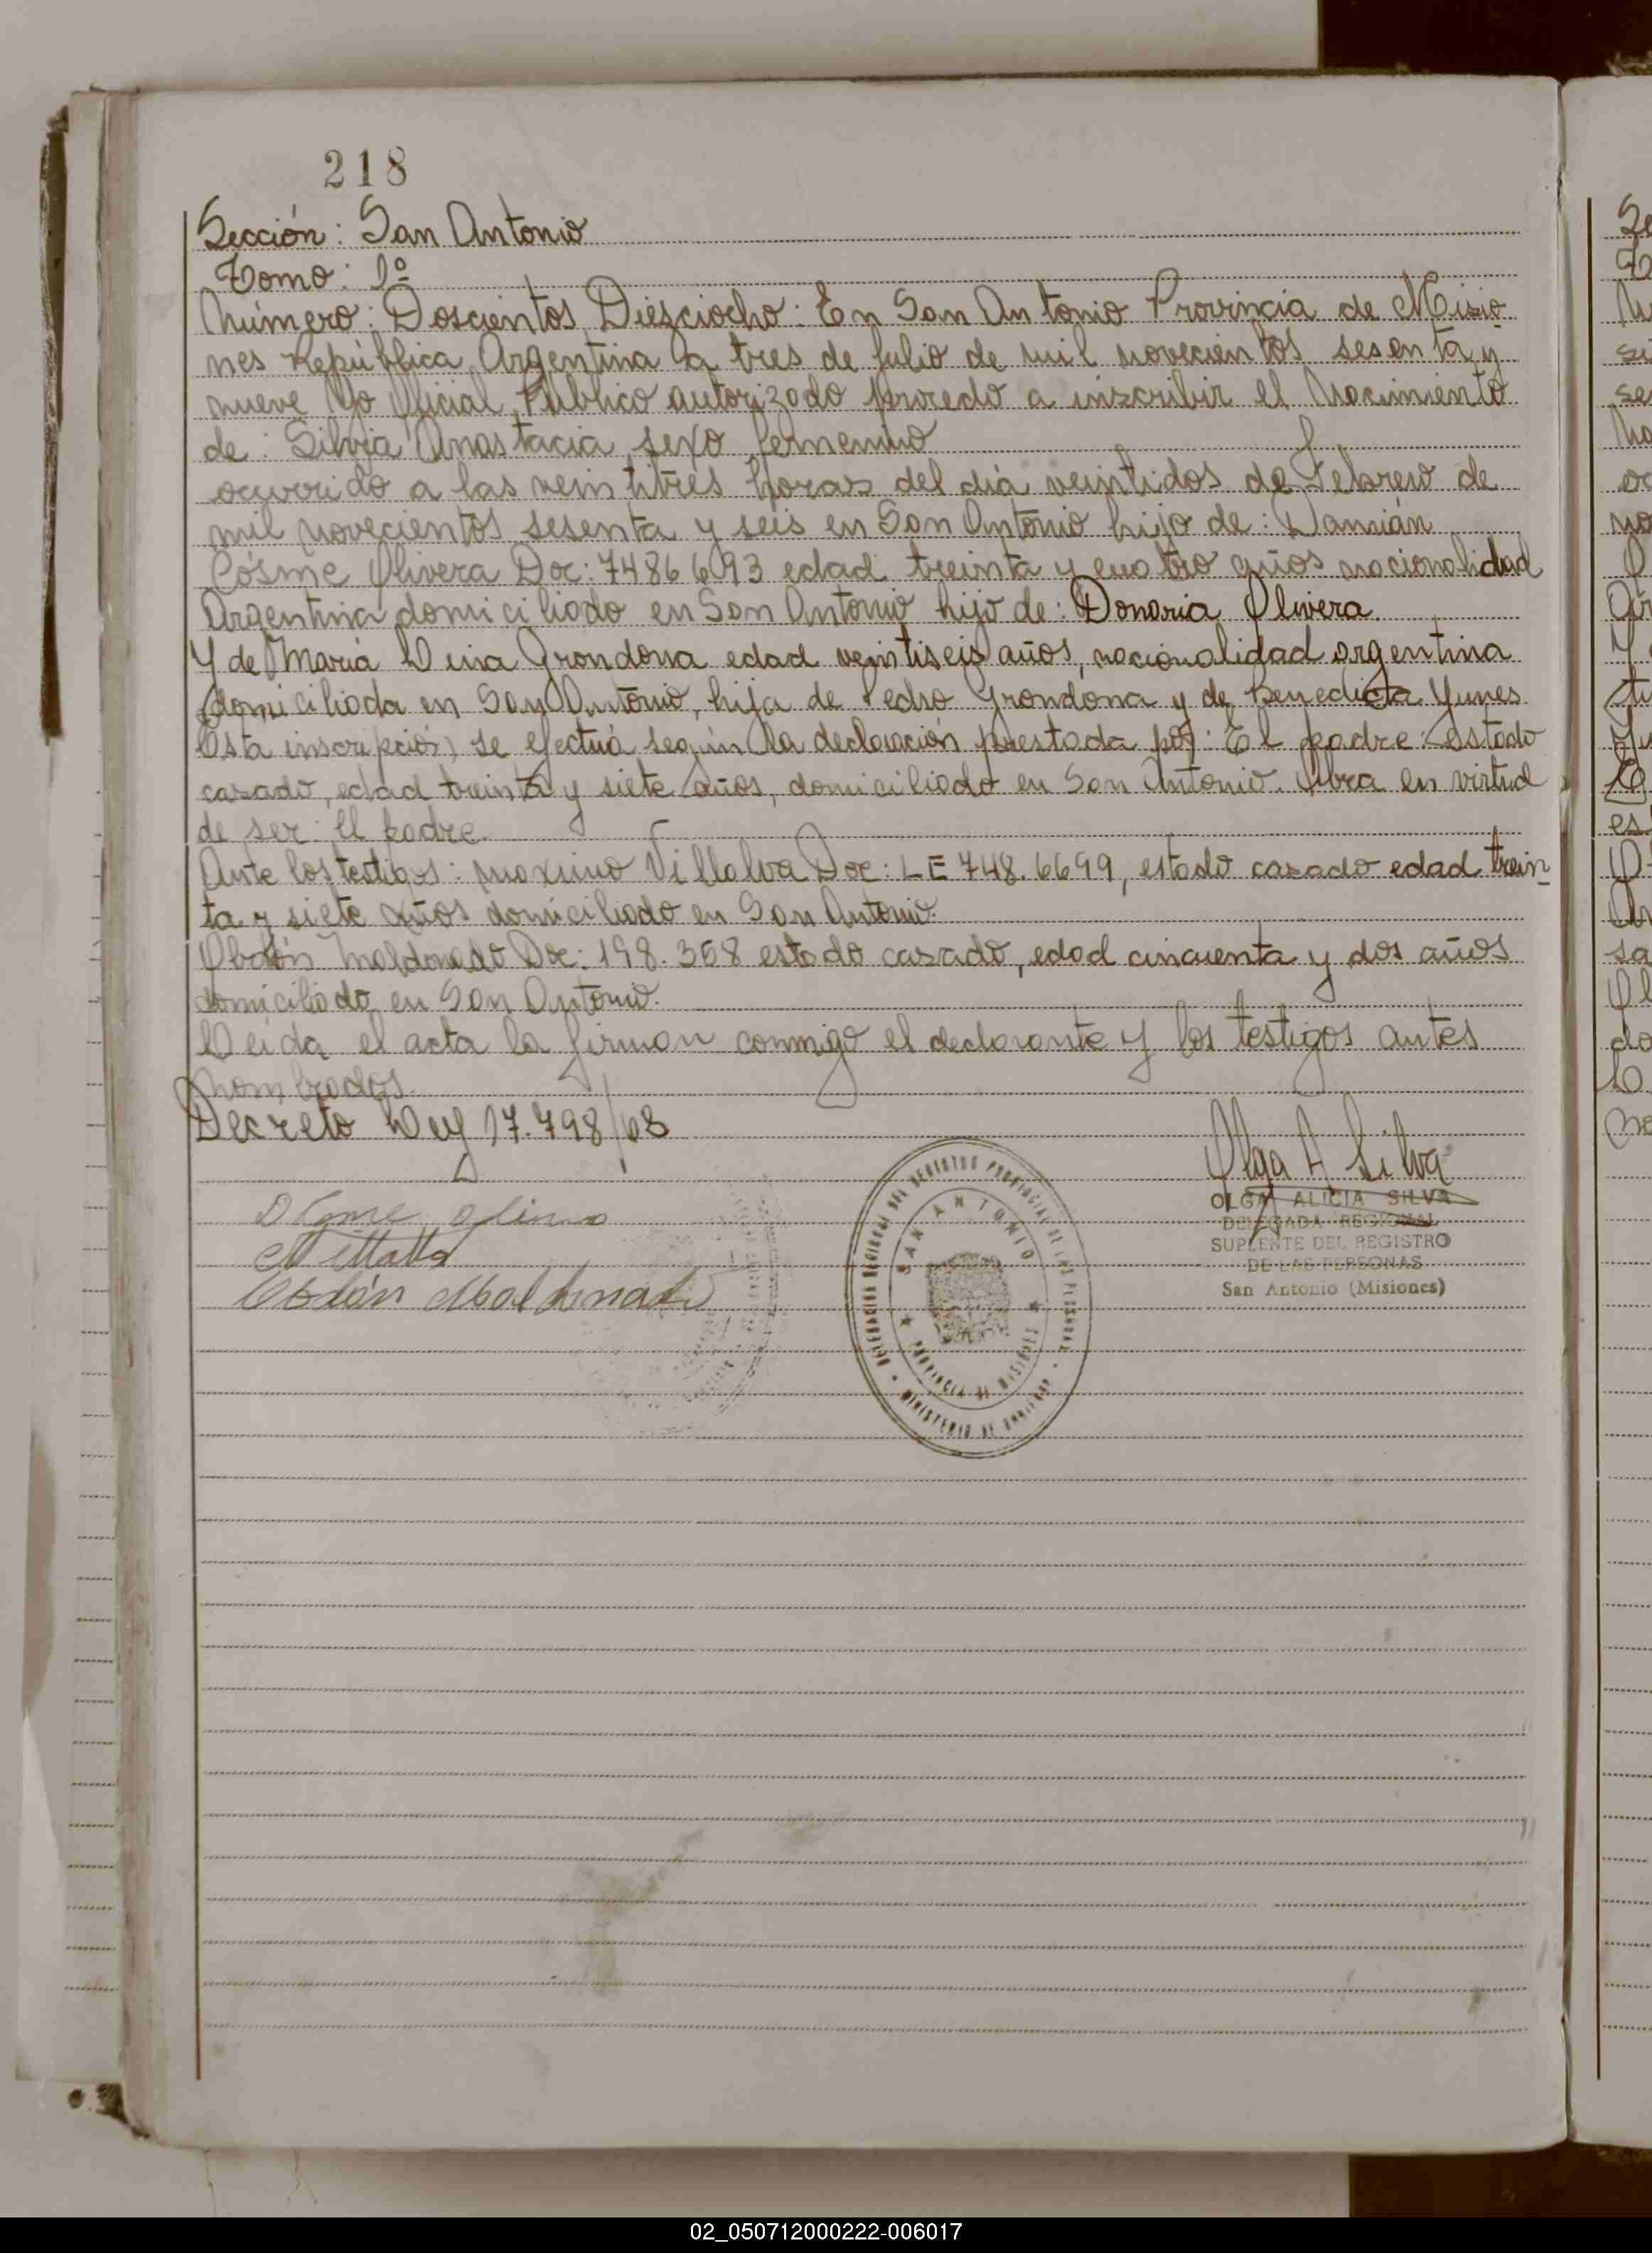 218
Sección: San Antonio
Tomo: 1º
Número: Doscientos Diezciocho: En San Antonio Provincia de Misio
nes República Argentina a tres de Julio de mil novecientos sesenta y
nueve Yo Oficial Público autorizado procedo a inscribir el Nacimiento
de: Silvia Anastacia sexo femenino
ocurrido a las veintitrés horas del día veintidos de Febrero de
mil novecientos sesenta y seis en San Antonio hijo de: Damián
Cósme Olivera Doc: 7486693 edad treinta y cuatro años nacionalidad
Argentina domiciliado en San Antonio hijo de: Donaria Olivera.
Y de María Lina Grondona edad veintiseis años, nacionalidad argentina
domiciliada en San Antonio, hija de Pedro Grondona y de Benedicta Yunes
Esta inscripción se efectuá según la declaración prestada por: El padre: estado
casado, edad treinta y siete años, domiciliado en San Antonio. Obra en virtud
de ser: El padre.
Ante los testigos: Maximo Villalva Doc: LE 748.6699, estado casado edad trein
ta y siete años domiciliado en San Antonio.
Obdón Maldonado Doc: 198.368 estado casado, edad cincuenta y dos años
domiciliado en San Antonio.
Leida el acta la firman conmigo el declarante y los testigos antes
nombrados.
Decreto Ley 17.798/68
Olga A Silva
OLGA ALICIA SILVA
DELEGADA REGIONAL
SUPLENTE DEL REGISTRO
DE LAS PERSONAS
San Antonio (Misiones)
Obdón Maldonado
DELEGACION REGIONAL DEL REGISTRO PROVINCIAL DE LAS PERSONAS
SAN ANTONIO
PROVINCIA DE MISIONES
MINISTERIO DE GOBIERNO
02_050712000222-006017